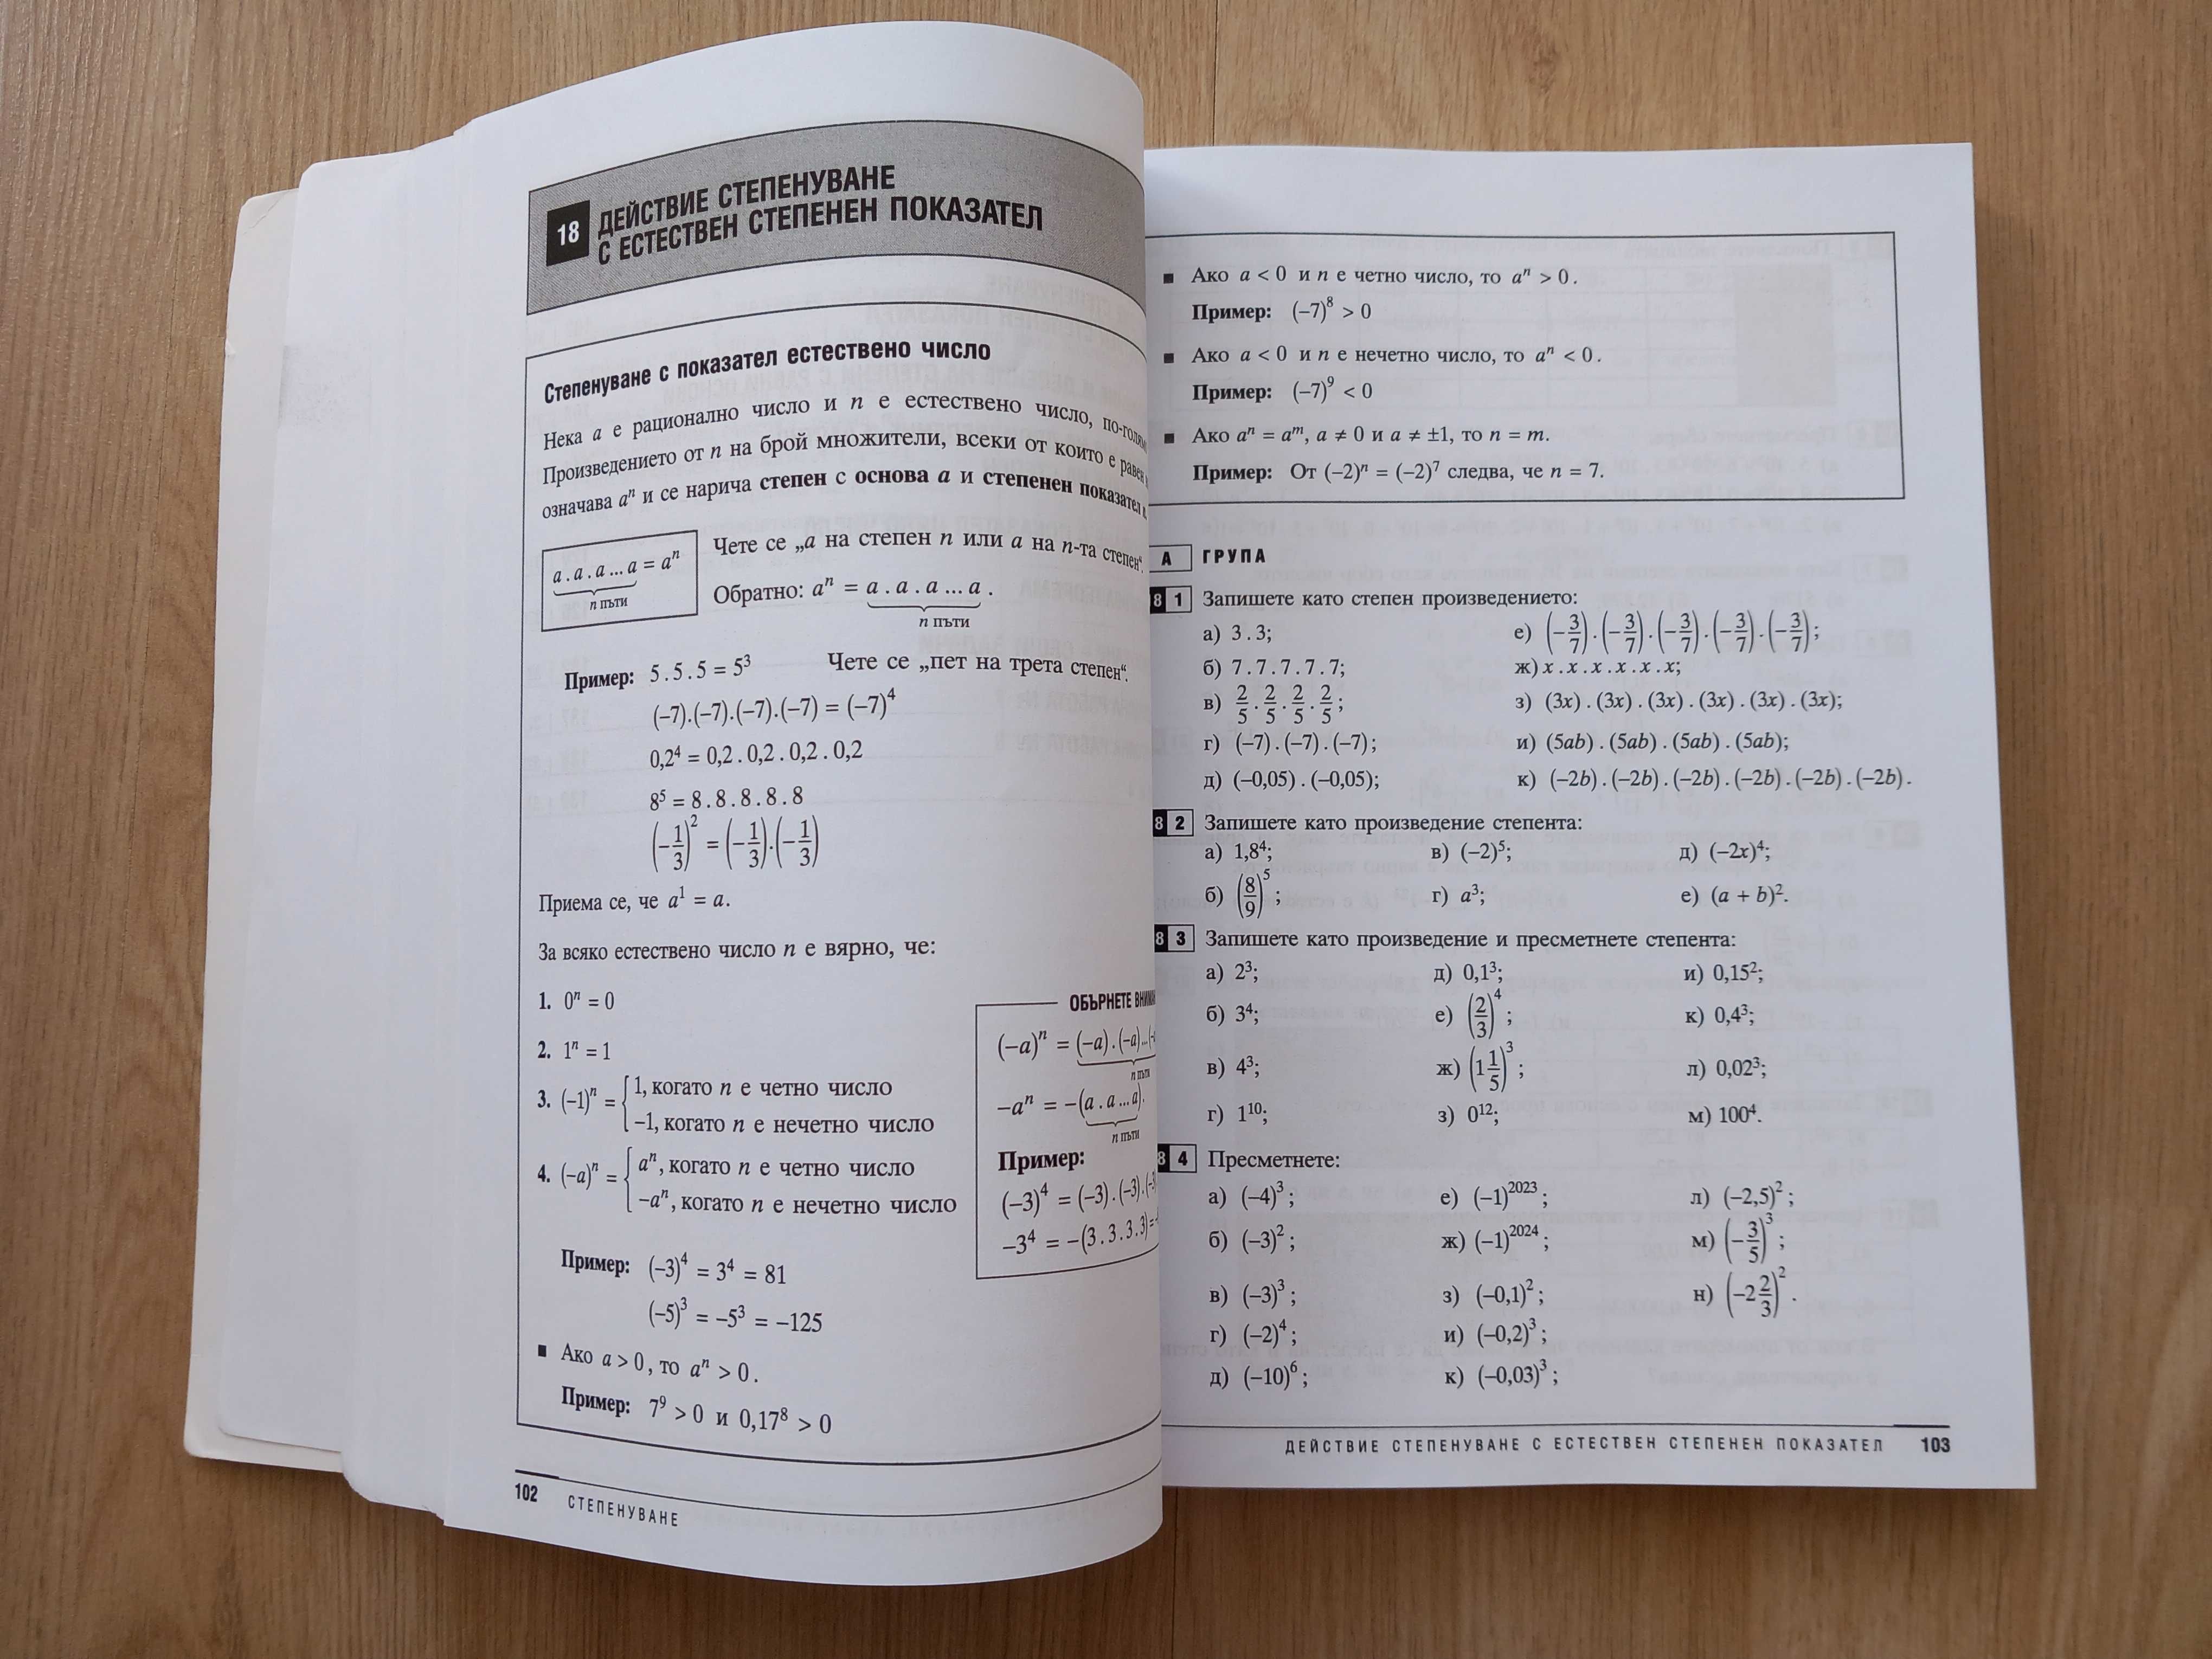 18 ДЕЙСТВИЕ СТЕПЕНУВАНЕ
С ЕСТЕСТВЕН СТЕПЕНЕН ПОКАЗАТЕЛ
Степенуване с показател естествено число
Нека a е рационално число и n е естествено число,
Произведението от n на брой множители, всеки от които е равен
означава aⁿ и се нарича степен с основа a и степенен показател
a . a . a ... a = aⁿ
n пъти
Чете се „a на степен n или a на n-та степен“.
Обратно: aⁿ = a . a . a ... a .
n пъти
Пример: 5 . 5 . 5 = 5³ Чете се „пет на трета степен“.
(–7).(–7).(–7).(–7) = (–7)⁴
0,2⁴ = 0,2 . 0,2 . 0,2 . 0,2
8⁵ = 8 . 8 . 8 . 8 . 8
(–1/3)² = (–1/3).(–1/3)
Приема се, че a¹ = a.
За всяко естествено число n е вярно, че:
1. 0ⁿ = 0
2. 1ⁿ = 1
3. (–1)ⁿ = { 1, когато n е четно число
–1, когато n е нечетно число
4. (–a)ⁿ = { aⁿ, когато n е четно число
–aⁿ, когато n е нечетно число
Пример: (–3)⁴ = 3⁴ = 81
(–5)³ = –5³ = –125
■ Ако a > 0, то aⁿ > 0.
Пример: 7⁹ > 0 и 0,17⁸ > 0
ОБЪРНЕТЕ
(–a)ⁿ = (–a) . (–a) ...
n пъти
–aⁿ = –(a . a ... a).
n пъти
Пример:
(–3)⁴ = (–3) . (–3) .
–3⁴ = –(3 . 3 . 3 . 3) =
102 СТЕПЕНУВАНЕ
■ Ако a < 0 и n е четно число, то aⁿ > 0.
Пример: (–7)⁸ > 0
■ Ако a < 0 и n е нечетно число, то aⁿ < 0.
Пример: (–7)⁹ < 0
■ Ако aⁿ = aᵐ, a ≠ 0 и a ≠ ±1, то n = m.
Пример: От (–2)ⁿ = (–2)⁷ следва, че n = 7.
А ГРУПА
8 1 Запишете като степен произведението:
а) 3 . 3; е) (–3/7) . (–3/7) . (–3/7) . (–3/7) . (–3/7);
б) 7 . 7 . 7 . 7 . 7; ж) x . x . x . x . x . x;
в) 2/5 . 2/5 . 2/5 . 2/5; з) (3x) . (3x) . (3x) . (3x) . (3x) . (3x);
г) (–7) . (–7) . (–7); и) (5ab) . (5ab) . (5ab) . (5ab);
д) (–0,05) . (–0,05); к) (–2b) . (–2b) . (–2b) . (–2b) . (–2b) . (–2b).
8 2 Запишете като произведение степента:
а) 1,8⁴; в) (–2)⁵; д) (–2x)⁴;
б) (8/9)⁵; г) a³; е) (a + b)².
8 3 Запишете като произведение и пресметнете степента:
а) 2³; д) 0,1³; и) 0,15²;
б) 3⁴; е) (2/3)⁴; к) 0,4³;
в) 4³; ж) (1 1/5)³; л) 0,02³;
г) 1¹⁰; з) 0¹²; м) 100⁴.
8 4 Пресметнете:
а) (–4)³; е) (–1)²⁰²³; л) (–2,5)²;
б) (–3)²; ж) (–1)²⁰²⁴; м) (–3/5)³;
в) (–3)³; з) (–0,1)²; н) (–2 2/3)².
г) (–2)⁴; и) (–0,2)³;
д) (–10)⁶; к) (–0,03)³;
ДЕЙСТВИЕ СТЕПЕНУВАНЕ С ЕСТЕСТВЕН СТЕПЕНЕН ПОКАЗАТЕЛ 103